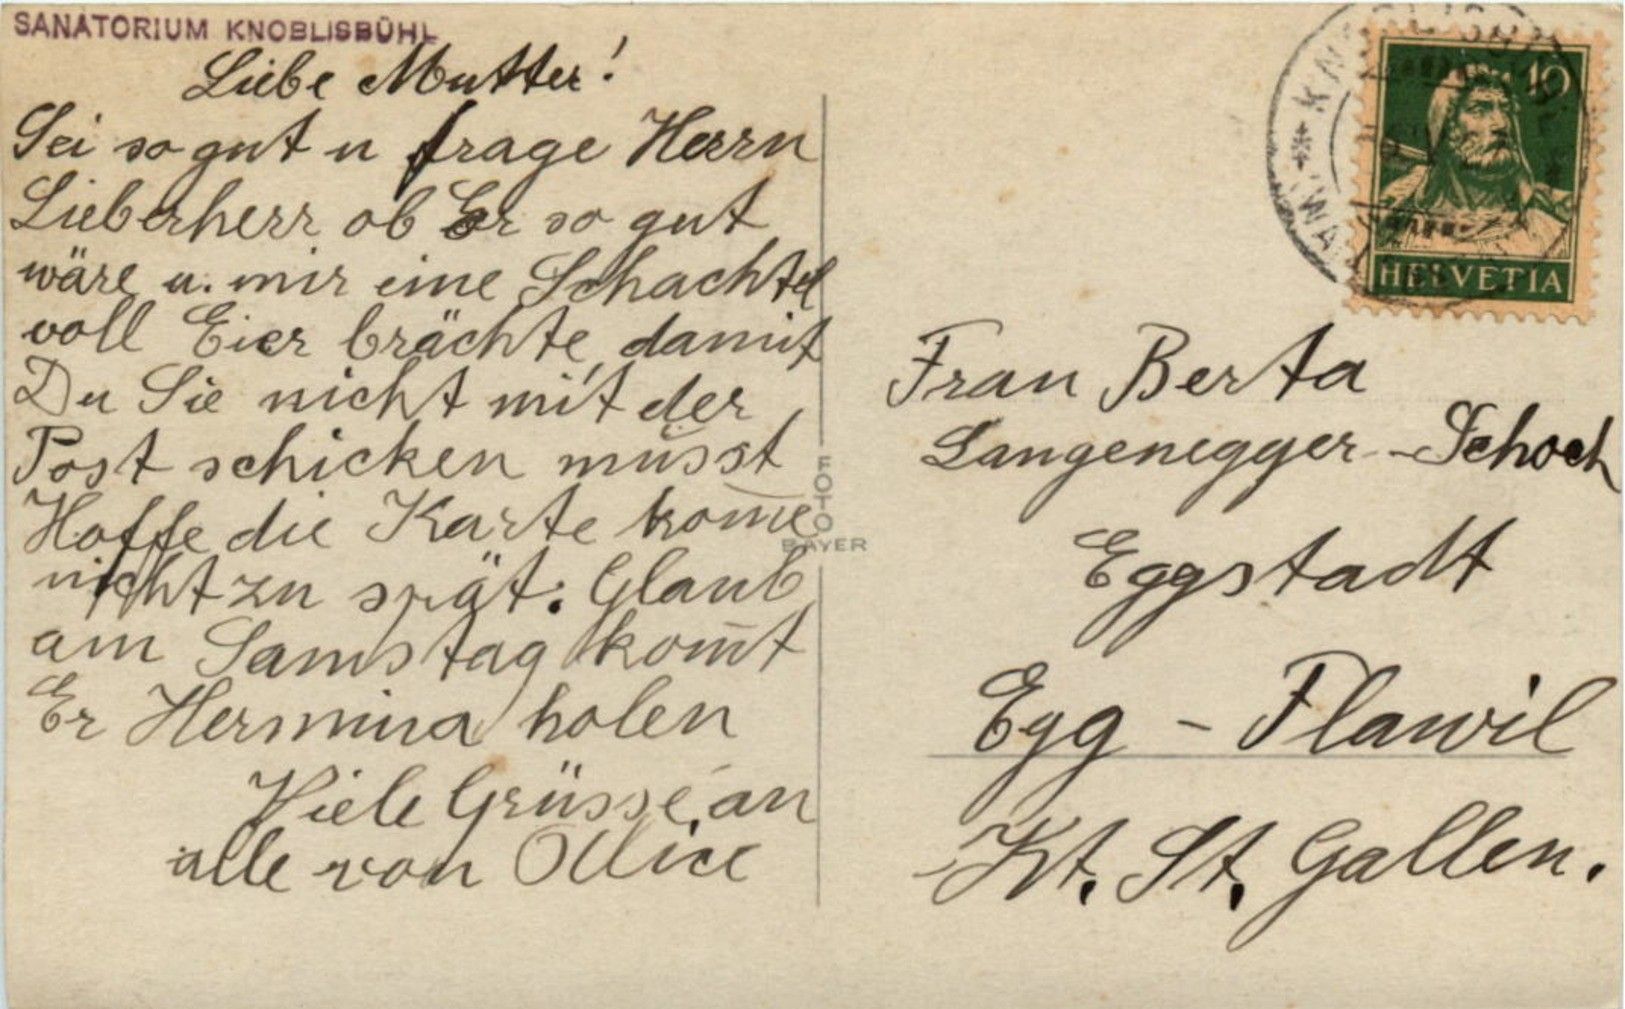 SANATORIUM KNOBLISBÜHL
Liebe Mutter!
Sei so gut u frage Herrn
Lieberherr ob Er so gut
wäre u. mir eine Schachtel
voll Eier brächte, damit
Du Sie nicht mit der
Post schicken müsst
Hoffe die Karte kom̅e
nicht zu spät. Glaub
am Samstag kom̅t
Er Hermina holen
Viele Grüsse an
alle von
FOTO
BAYER
10
HELVETIA
Frau Berta
Langenegger-Schoch
Eggstadt
Egg - Flawil
Kt. St. Gallen.